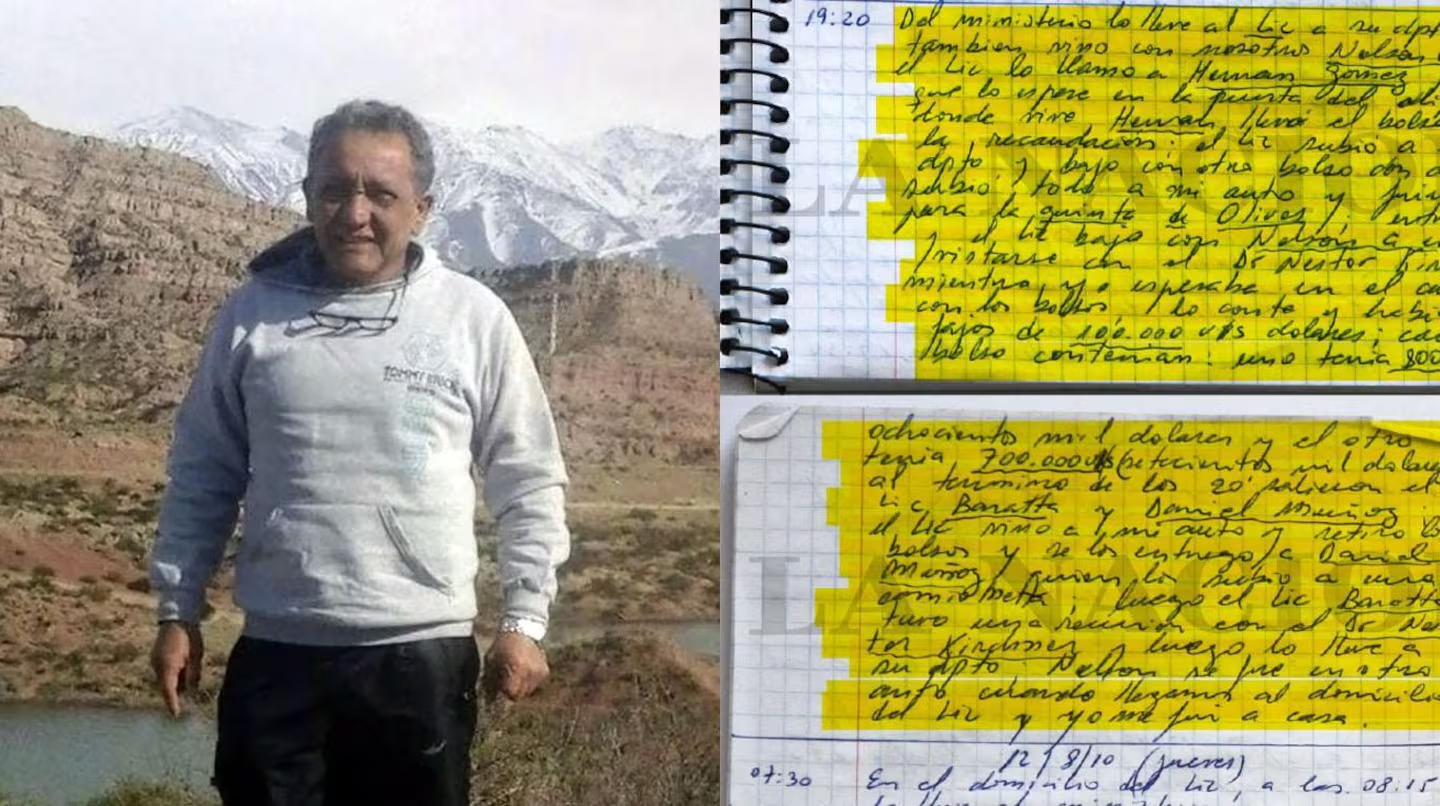 TOMMY
19:20 Del ministerio lo lleve al Lic a su dpto
tambien vino con nosotros Nelson
el Lic lo llamo a Hernan Gomez
que lo espere en la puerta del
donde vive Hernan llevó el bolso
la recaudación; el Lic subió a
dpto y bajo con otro bolso
subio todo a mi auto y
para la quinta de Olivos y
y el Lic bajo con Nelson a
con el Dr Nestor
mientras yo esperaba en el
con los bolsos lo conte y habia
fajos de 100.000 U$S dolares;
bolso contenian: uno tenia 800
ochocientos mil dolares y el otro
tenia 700.000 U$S (setecientos mil dolares
al termino de los 20' salieron el
Lic Baratta y Daniel Muñoz
el Lic vino a mi auto y retiro
bolsos y se los entrego a Daniel
Muñoz quien los subio a una
camioneta; luego el Lic Baratta
tuvo una reunion con el Dr Nes
tor Kirchner y luego lo lleve a
su dpto. Nelson se fue en otro
auto cuando llegamos al domicilio
del Lic y yo me fui a casa.
12/8/10 (jueves)
07:30 En el domicilio del Lic, a las 08:15
LA NACIO
LA NACIO